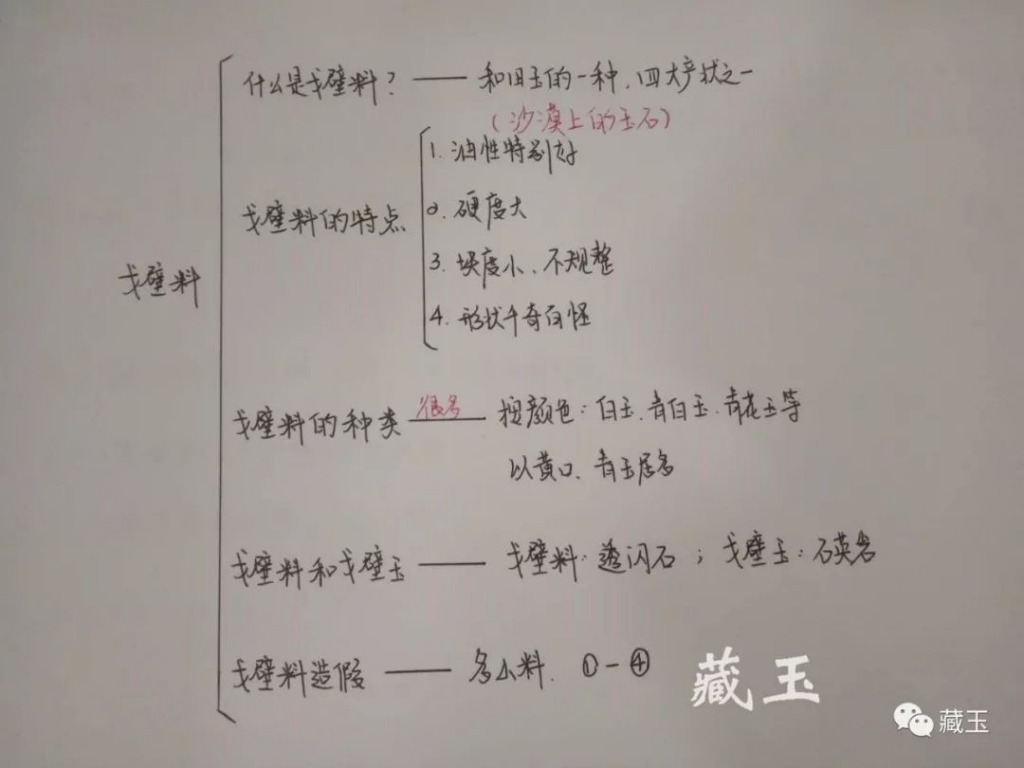 什么是戈壁料？ —— 和田玉的一种，四大产状之一
（沙漠上的玉石）
戈壁料的特点
1. 油性特别好
2. 硬度大
3. 块度小、不规整
4. 形状千奇百怪
戈壁料
戈壁料的种类 很多 —— 按颜色：白玉、青白玉、青花玉等
以黄口、青玉居多
戈壁料和戈壁玉 —— 戈壁料：透闪石；戈壁玉：石英岩
戈壁料造假 —— 多小料. ①—④
藏玉
藏玉